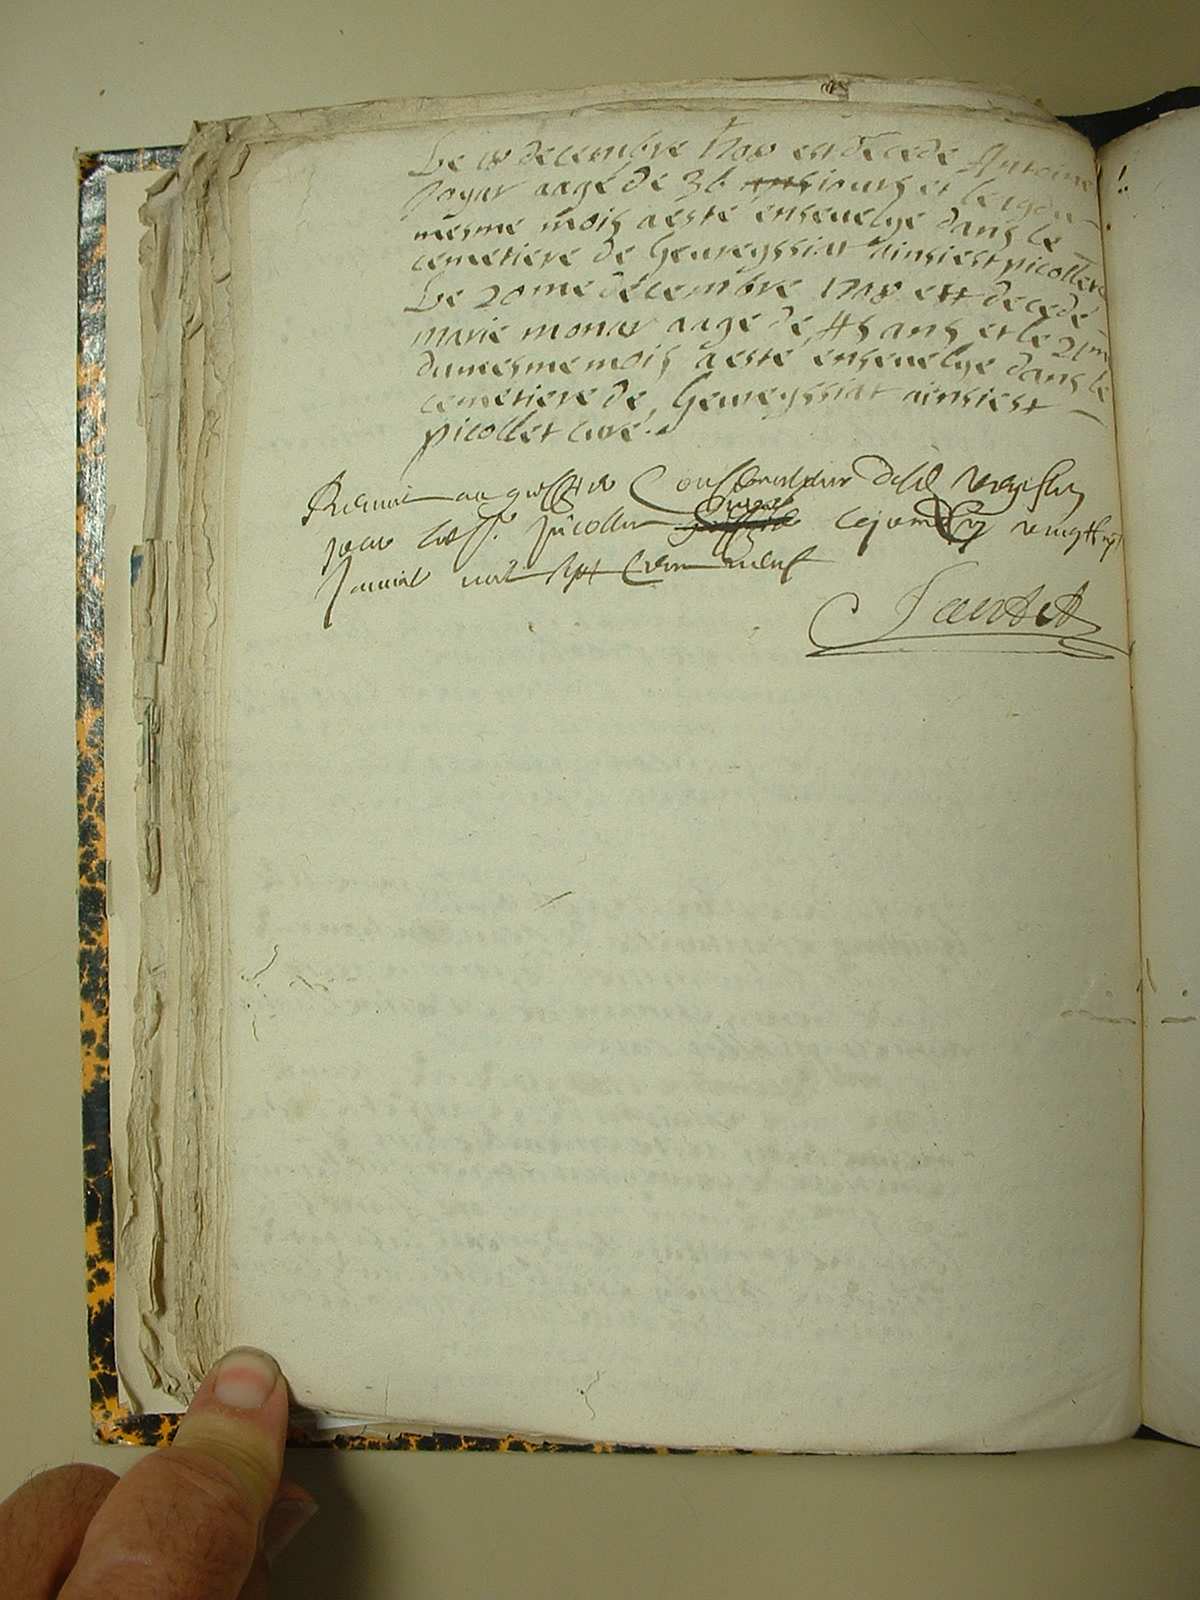 Le 18 decembre 1708 est decede Antoine
Joyar aagé de 36 ans iours et le 19 du
mesme mois a esté enseuelye dans le
cemetiere de Geureyssiat ainsi est picollet
Le 20me decembre 1708 est decedé
marie monar aagé de 45 ans et le 21me
du mesme mois a esté enseuelye dans le
cemetiere de Geureyssiat ainsi est
picollet curé
au greffe
par picollet curé cejourdhuy vingt
Januier mil sept Cent neuf